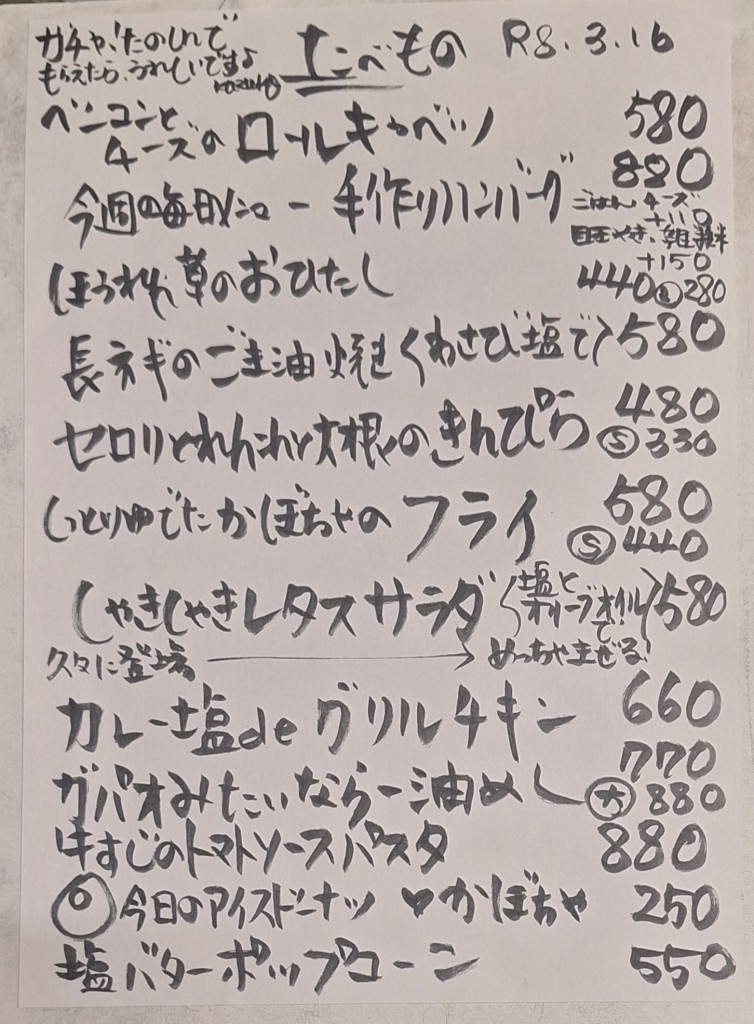 ガチャ!たのしんで
もらえたら、うれしいです♪
たべもの R8.3.16
ベーコンと
チーズのロールキャベツ 580
今週の毎日メニュー 手作りハンバーグ 880
ごはん チーズ
+110
目玉やき、雑穀米
+150
ほうれん草のおひたし 440 Ⓢ280
長ネギのごま油焼き〈わさび塩で〉580
セロリとれんこんと大根のきんぴら 480
Ⓢ330
しっとりゆでたかぼちゃのフライ 580
Ⓢ440
しゃきしゃきレタスサラダ〈塩と
オリーブオイル〉580
で
久々に登場 → めっちゃまぜる!
カレー塩deグリルチキン 660
ガパオみたいならー油めし 770
大 880
牛すじのトマトソースパスタ 880
今日のアイスドーナツ ♥かぼちゃ 250
塩バターポップコーン 550